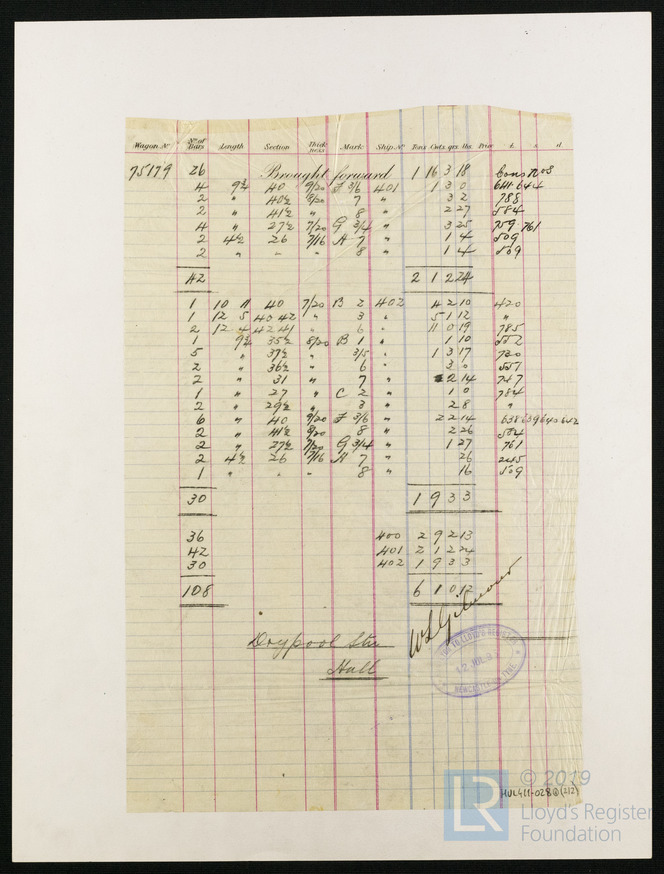 Wagon No Nos of Bars Length Section Thickness Mark Ship No Tons Cwts qrs lbs Price £ s d
75179 26 Brought forward 1 16 3 18 Cons nos
4 9¾ 40 9/20 F 3/6 401 1 3 0 641.644
2 " 40½ 8/20 7 " 3 2 788
2 " 41½ 8 " 2 27 584
4 " 27½ 7/20 G 3/4 " 3 25 759.761
2 4½ 26 7/16 H 7 " 1 4 509
2 " " " 8 " 1 4 509
42 2 1 2 24
1 10 11 40 7/20 B 2 402 4 2 10 420
1 12 5 40 42 " 3 " 5 1 12 "
2 12 4 42 41 " 6 " 11 0 19 785
1 9¾ 35½ 8/20 B 1 " 1 10 552
5 " 37½ " 3/5 " 1 3 17 720
2 " 36½ " 6 " 3 0 551
2 " 31 " 7 " 2 14 747
1 " 27 " C 2 " 1 0 784
2 " 29½ " 3 " 2 8 "
6 " 40 9/20 F 3/6 " 2 2 14 638 639 640 642
2 " 41½ 8/20 8 " 2 26 584
2 " 27½ 7/20 G 3/4 " 1 27 761
2 4½ 26 7/16 H 7 " 26
1 " " " 8 " 16 509
30 1 9 3 3
36 400 2 9 2 13
42 401 2 1 2 24
30 402 1 9 3 3
108 6 1 0 12
W L Gilmour
Drypool Stn
Hull
TO LLOYD'S REGISTER
12 JUL
NEWCASTLE ON TYNE
© 2019
HUL411-0280(2/2)
LR
Lloyd's Register
Foundation